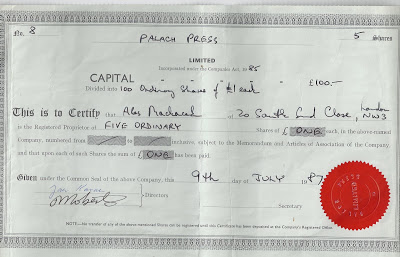 No. 8 PALACH PRESS 5 Shares
LIMITED
Incorporated under the Companies Act, to 85
CAPITAL £100.-
Divided into 100 Ordinary Shares of £1 each
This is to Certify that of 20 South End Close, London NW3
is the Registered Proprietor of FIVE ORDINARY Shares of £ ONE each, in the above-named
Company, numbered from to inclusive, subject to the Memorandum and Articles of Association of the Company,
and that upon each of such Shares the sum of £ ONE has been paid.
Given under the Common Seal of the Company, this 9th day of JULY 1987
Directors
Secretary
NOTE—No transfer of any of the above-mentioned Shares will be registered until this Certificate has been deposited at the Company's Registered Office.
PALACH PRESS LIMITED